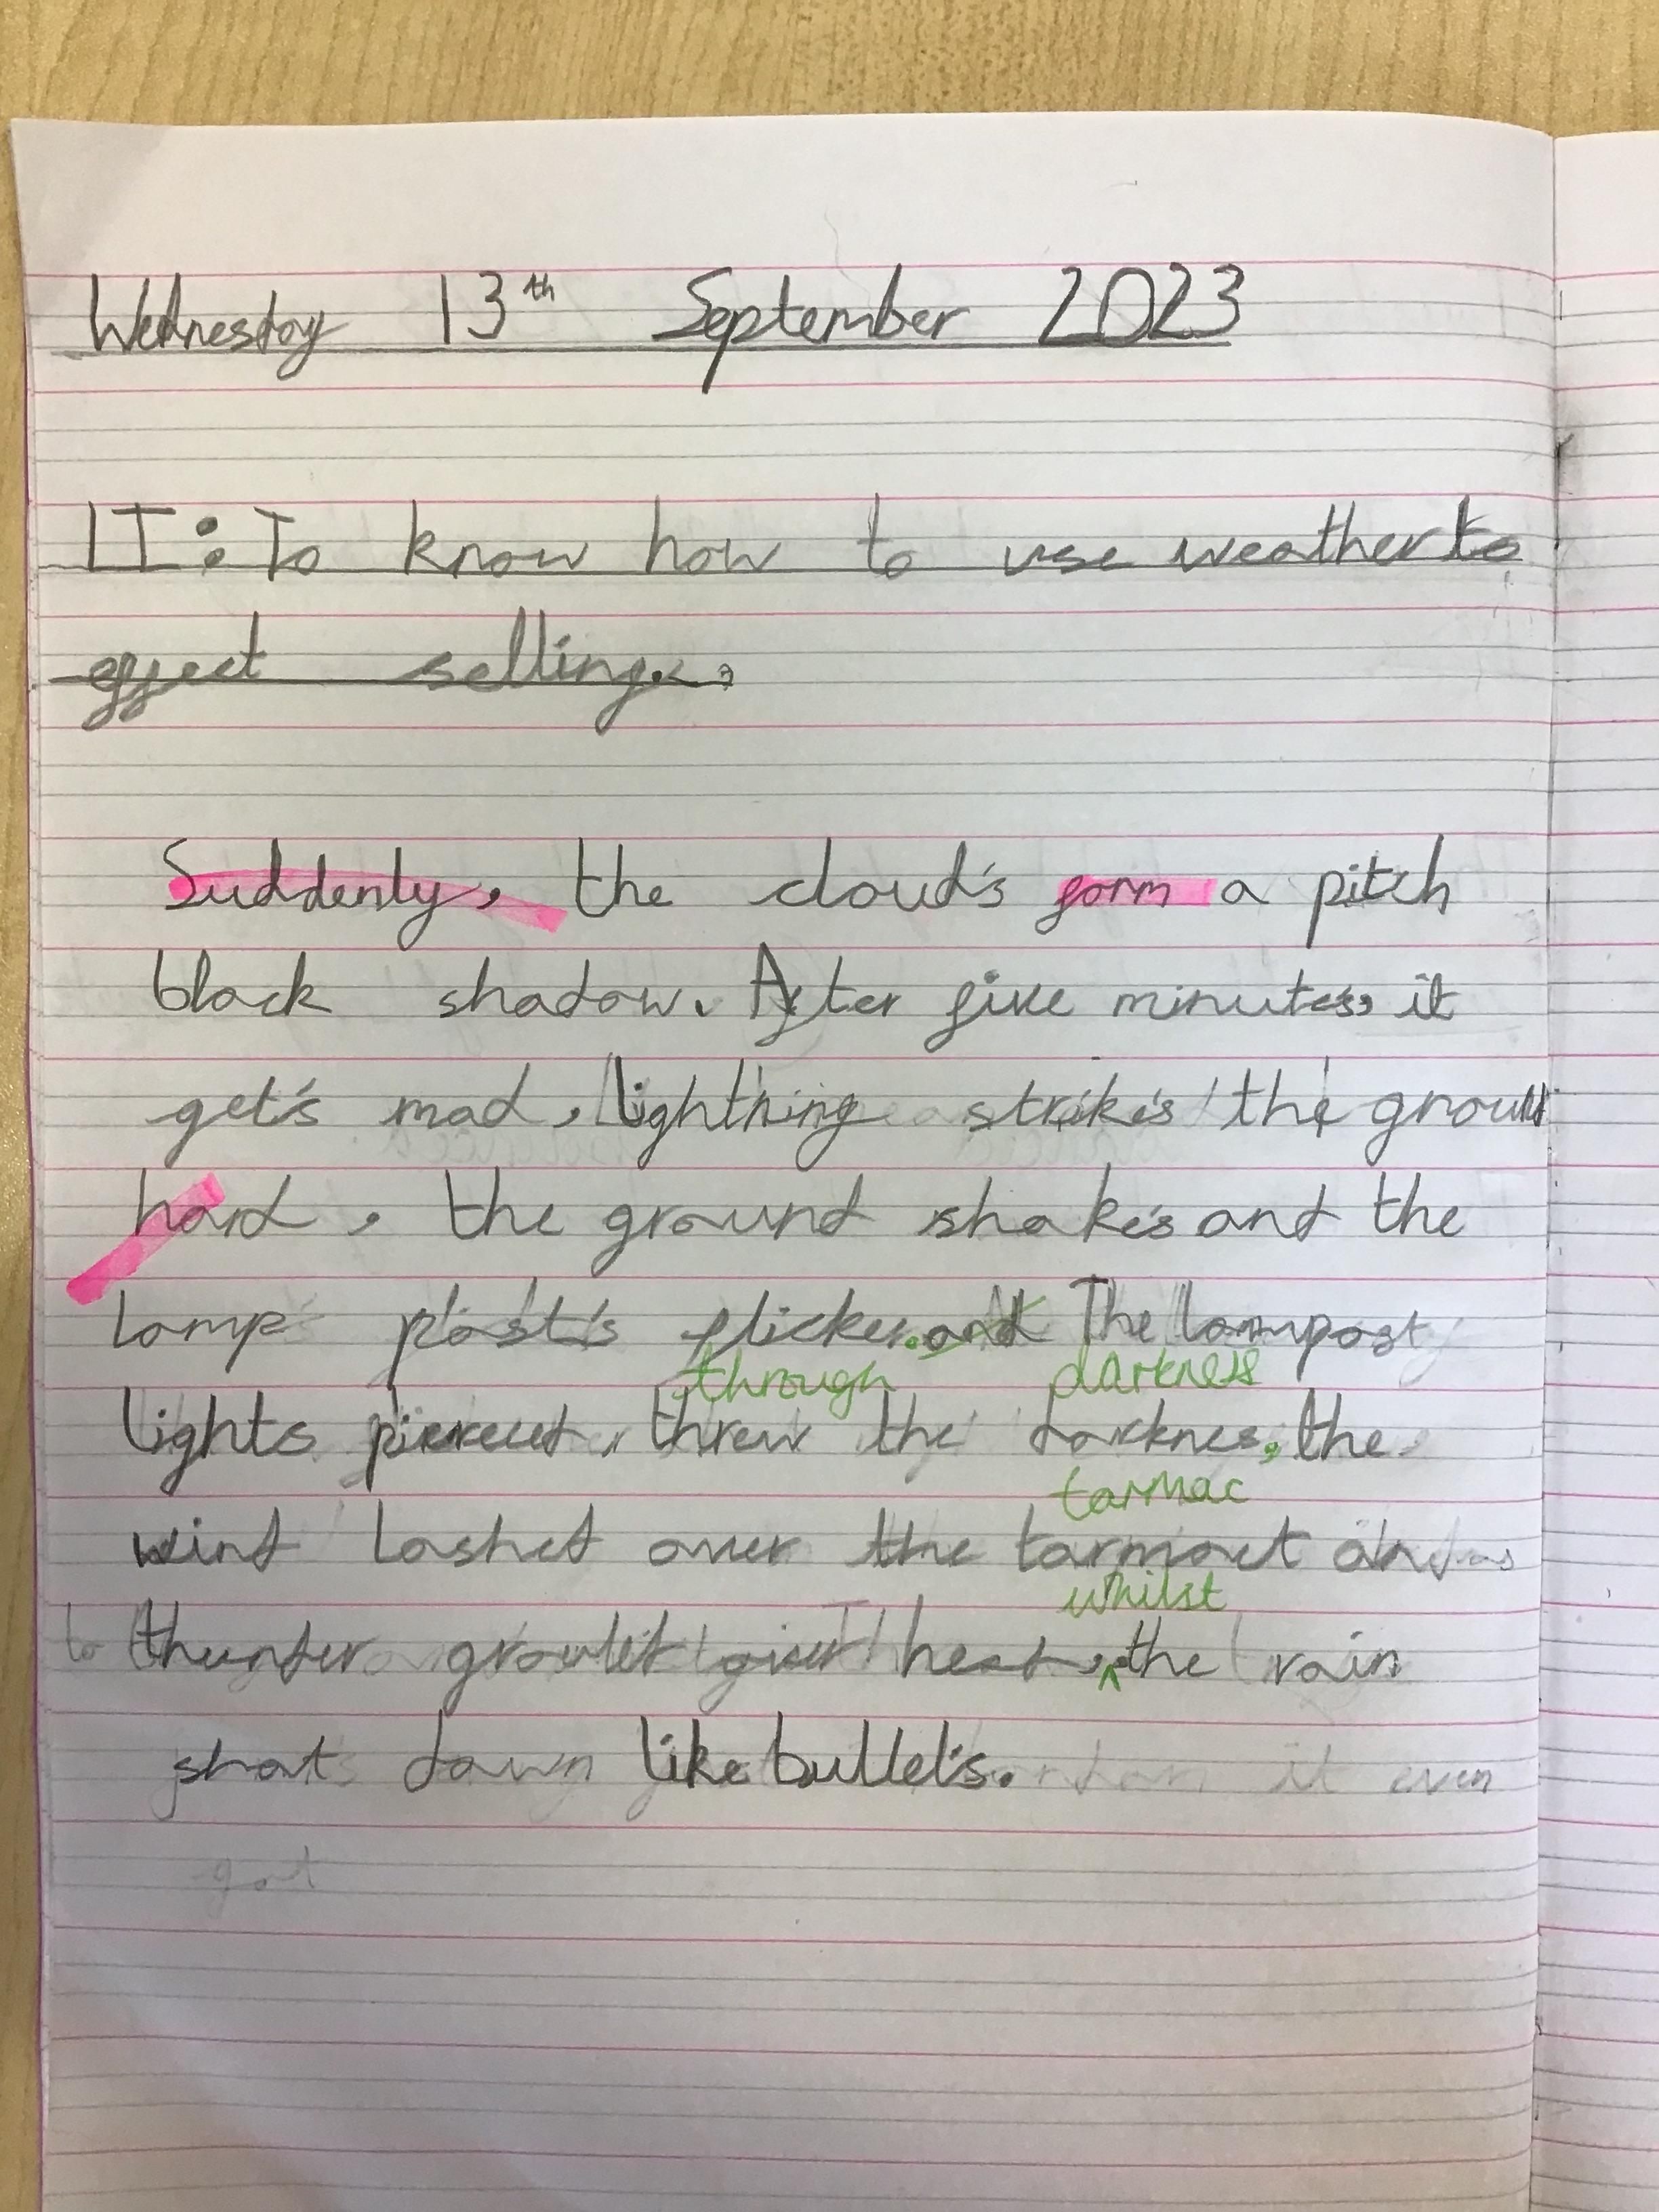 Wednesday 13th September 2023
LT: To know how to use weather to
effect setting.
Suddenly, the cloud's form a pitch
black shadow. After five minutes, it
get's mad, lightning strike's the ground
hard, the ground shake's and the
lamp post's flicker. and The lampost
through darkness
lights pierced, threw the darknes, the
tarmac
wind lashed over the tarmact and
whilst
thunder growled over head, the rain
shot down like bullet's.
it even
got